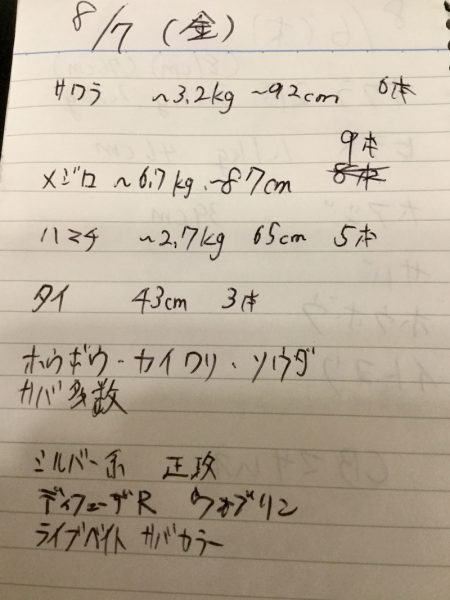 8/7 (金)
サワラ ～3.2kg ～92cm 6本
9本
メジロ ～6.7kg ～87cm 8本
ハマチ ～2.7kg 65cm 5本
タイ 43cm 3本
ホウボウ・カイワリ・ソウダ
サバ多数
シルバー系 正攻
ディフューザR ウォブリン
ライブベイト サバカラー